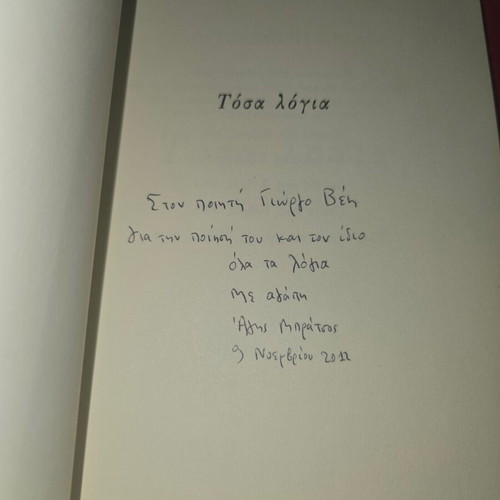 Τόσα λόγια
Στον ποιητή Γιώργο Βέη
για την ποίησή του και τον ίδιο
όλα τα λόγια
Με αγάπη
Άλης Μπράτσος
9 Νοεμβρίου 2012